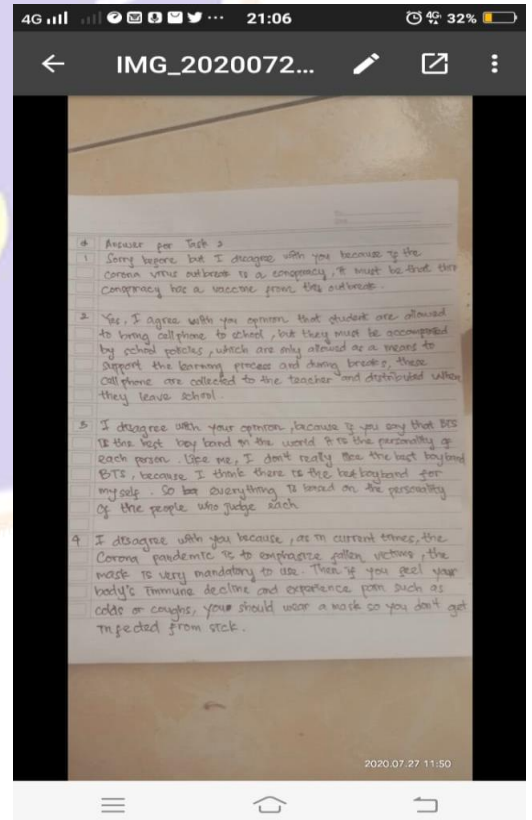 4G 21:06 4G 32%
IMG_2020072...
Answer for Task 2
1 Sorry before but I disagree with you because if the
corona virus outbreak is a conspiracy, it must be that this
conspiracy has a vaccine from this outbreak.
2 Yes, I agree with you opinion that student are allowed
to bring cellphone to school, but they must be
by school policies, which are only allowed as a means to
support the learning process and during breaks, these
cell phone are collected to the teacher and distributed when
they leave school.
3 I disagree with your opinion, because if you say that BTS
is the best boy band in the world it is the personality of
each person. Like me, I don't really the best boyband
BTS, because I think there is the best boyband for
my self. So everything is based on the personality
of the people who judge each
4 I disagree with you because, as in current times, the
Corona pandemic is to emphasize fallen victims, the
mask is very mandatory to use. Then if you feel your
body's immune decline and experience pain such as
colds or coughs, your should wear a mask so you don't get
infected from sick.
2020.07.27 11:50